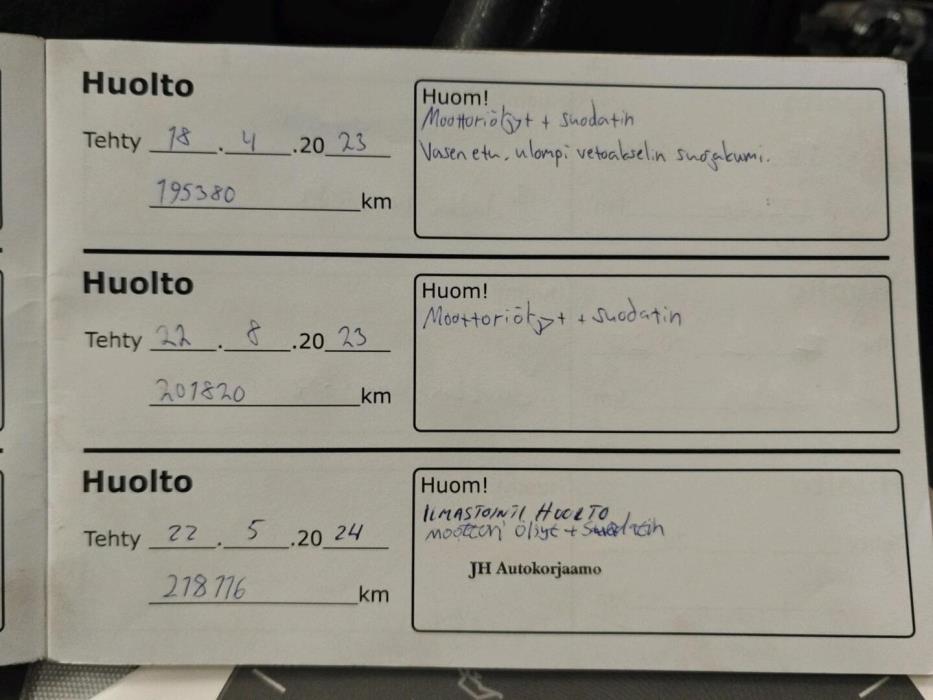 Huolto
Tehty 18.4.2023
195380 km
Huom!
Moottoriöljyt + suodatin
Vasen etu. ulompi vetoakselin suojakumi.
Huolto
Tehty 22.8.2023
201820 km
Huom!
Moottoriöljyt + suodatin
Huolto
Tehty 22.5.2024
218116 km
Huom!
ILMASTOINTI HUOLTO
moottori öljyt + Suodatin
JH Autokorjaamo